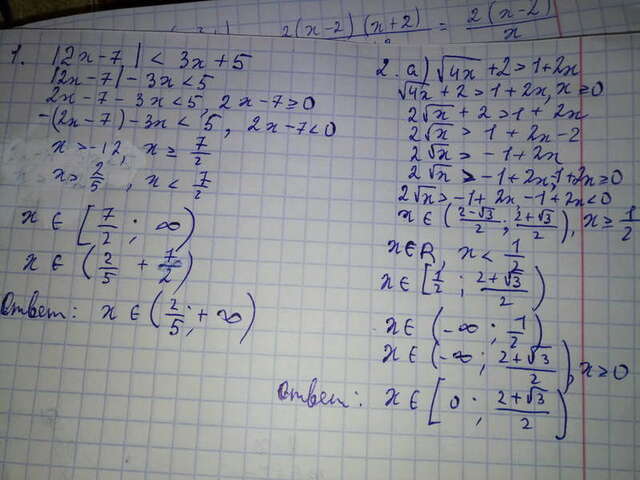 2(x-2)(x+2) = 2(x-2)/x
1. |2x-7| < 3x+5
|2x-7|-3x<5
2x-7-3x<5, 2x-7≥0
-(2x-7)-3x<5, 2x-7<0
x>-12, x≥7/2
x>2/5, x<7/2
x∈[7/2; ∞)
x∈(2/5 + 7/2)
Ответ: x∈(2/5; +∞)
2. а) √4x+2>1+2x
√4x+2>1+2x, x≥0
2√x+2>1+2x
2√x>1+2x-2
2√x>-1+2x
2√x>-1+2x,-1+2x≥0
2√x>-1+2x,-1+2x<0
x∈((2-√3)/2; (2+√3)/2), x≥1/2
x∈R, x<1/2
x∈[1/2; (2+√3)/2)
x∈(-∞; 1/2)
x∈(-∞; (2+√3)/2), x≥0
Ответ: x∈[0; (2+√3)/2)